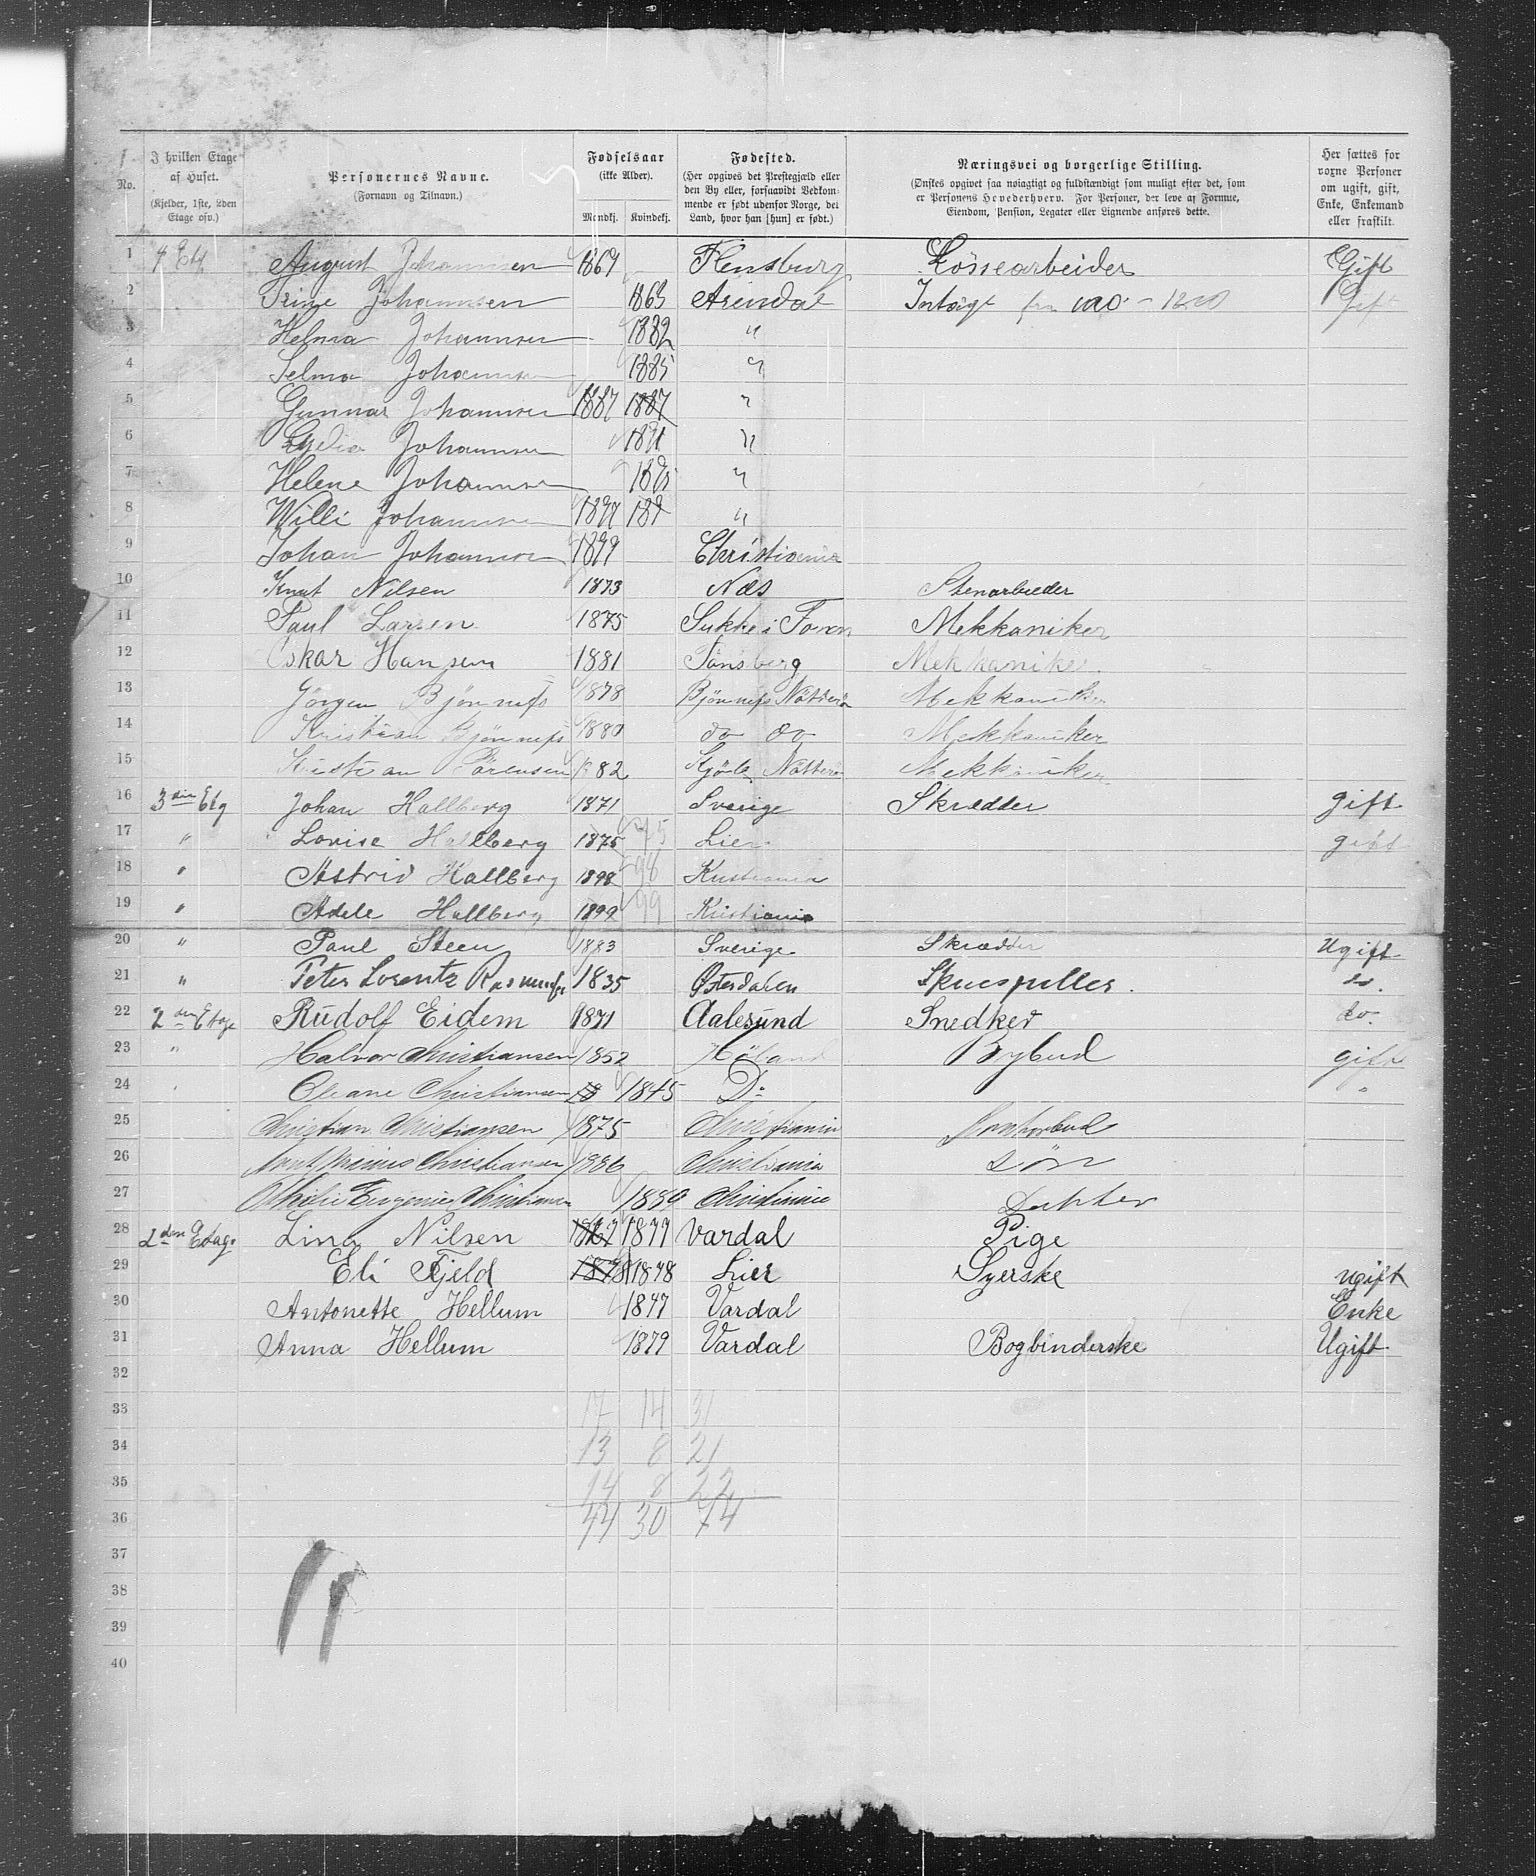 No.
I hvilken Etage
af Huset.
(Kjelder, 1ste, 2den
Etage osv.)
Personernes Navne.
(Fornavn og Tilnavn.)
Fødselsaar
(ikke Alder).
Mandkj. Kvindekj.
Fødested.
(Her opgives det Prestegjæld eller
den By eller, forsaavidt Vedkom-
mende er født udenfor Norge, det
Land, hvor han [hun] er født.)
Næringsvei og borgerlige Stilling.
(Ønskes opgivet saa nøiagtigt og fuldstændigt som muligt efter det, som
er Personens Hovederhverv. For Personer, der leve af Formue,
Eiendom, Pension, Legater eller Lignende anføres dette.
Her sættes for
voxne Personer
om ugift, gift,
Enke, Enkemand
eller fraskilt.
1 4 Etg August Johannsen Flensburg Lössearbeider Gift
2 Trine Johannsen 1863 Arendal Intægt 1200 Gift
3 Helma Johannsen 1882 "
4 Selma Johannsen 1885 "
5 Gunnar Johannsen 1887 1887 "
6 Lydia Johannsen "
7 Helene Johannsen 1895 "
8 Willi Johannsen 1897 189 "
9 Johan Johannsen 1899 Christiania
10 Knut Nilsen 1873 Næs Stenarbeider
11 Paul Larsen 1875 Mekkaniker
12 Oskar Hansen 1881 Tønsberg Mekkaniker
13 Jörgen Bjönness 1878 Bjönness Nötterö Mekkaniker
14 Kristian Bjönness 1880 do do Mekkaniker
15 Kristian Sörensen 1882 Nötterö Mekkaniker
16 3die Etg Johan Hallberg 1871 Sverige Skrædder gift
17 " Lovise Hallberg 1875 75 Lier gift
18 " Astrid Hallberg 1898 98 Kristiania
19 " Adele Hallberg 1899 99 Kristiania
20 " Paul Steen 1883 Sverige Skrædder Ugift
21 " Peter Lorentz 1835 Østerdalen Skuespiller. do.
22 2den Etage Rudolf Eidem 1871 Aalesund Snedker do.
23 " Halvor Christiansen 1852 Höland Bybud gift
24 Oleane Christiansen 18 1845 Do "
25 Christian Christiansen 1875 Christiania Kontorbud
26 Christiansen 1886 Christiania Sön
27 Eugenie Christiansen Christiania Datter
28 2den Etage Lina Nilsen 1877 Vardal Pige
29 Eli Fjeld 1878 1878 Lier Syerske ugift
30 Antonette Hellum 1847 Vardal Enke
31 Anna Hellum 1879 Vardal Bogbinderske Ugift
32
33 17 14 31
34 13 8 21
35 14 8 22
36 44 30 74
37
38
39
40